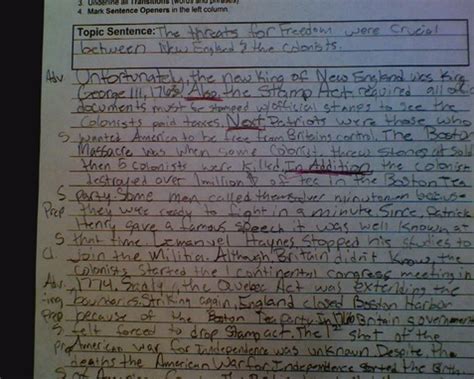 3. Underline all Transitions (words and phrases)
4. Mark Sentence Openers in the left column
Topic Sentence: The threats for Freedom were Crucial
between New England & the colonists.
Adv. Unfortunately, the new King of New England was King
George III, Also, the Stamp Act required all
documents must be stamped w/official stamps to see the
colonists paid taxes. Next Patriots were those who
S wanted America to be free from Britains control. The Boston
Massacre was when some colonist threw stones at
then 5 colonists were killed In Addition the colonist
destroyed over 1 million $ of tea in the Boston Tea
S party. Some men called themselves minutemen because
Prep they were ready to fight in a minute. Since, Patrick
Henry gave a famous speech it was well known at
S that time. Lemanuel Haynes, stopped his studies to
Cl. join the Militia. Although, Britain didn't know, the
colonists started the 1 continental congress meeting in
Adv. 1774. Sadly, the Quebec Act was extending the
-ing boundaries. Striking again, England closed Boston Harbor
Prep because of the Boston Tea Party. In Britain government
S felt forced to drop Stamp act. The 1st shot of the
Prep American war for Independence was unknown. Despite the
deaths the American War for Independence started the